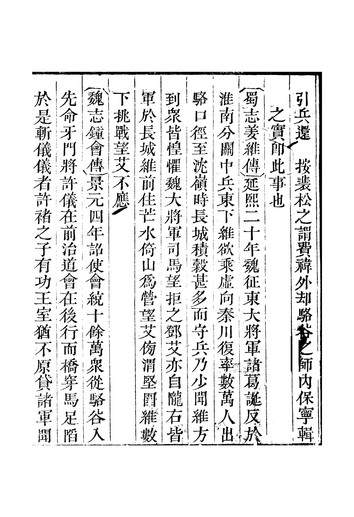 引兵還　按裴松之謂費禕外却駱谷之師内保寧輯
之實卽此事也
蜀志姜維傳延熙二十年魏征東大將軍諸葛誕反於
淮南分關中兵東下維欲乘虛向秦川復率數萬人出
駱口徑至沈嶺時長城積穀甚多而守兵乃少聞維方
到衆皆惶懼魏大將軍司馬望拒之鄧艾亦自隴右皆
軍於長城維前住芒水倚山爲營望艾傍渭堅圍維數
下挑戰望艾不應
魏志鍾會傳景元四年詔使會統十餘萬衆從駱谷入
先命牙門將許儀在前治道會在後行而橋穿馬足陷
於是斬儀儀者許褚之子有功王室猶不原貸諸軍聞